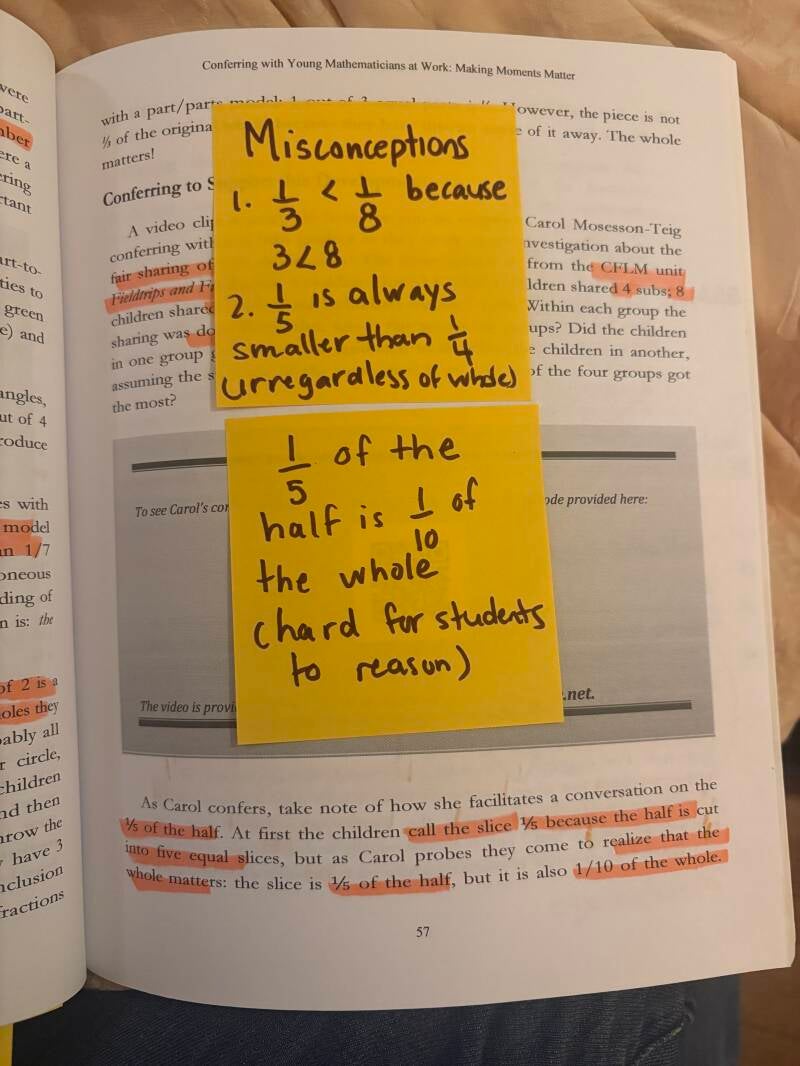 Conferring with Young Mathematicians at Work: Making Moments Matter
with a part/parts model: 1 out of 3 However, the piece is not
⅓ of the origina e of it away. The whole
matters!
Conferring to S
A video clip Carol Mosesson-Teig
conferring with nvestigation about the
fair sharing of from the CFLM unit
Fieldtrips and Fu ldren shared 4 subs; 8
children shared Within each group the
sharing was do ups? Did the children
in one group g e children in another,
assuming the s of the four groups got
the most?
Misconceptions
1. 1/3 < 1/8 because
3<8
2. 1/5 is always
smaller than 1/4
(urregardless of whole)
1/5 of the
half is 1/10 of
the whole
(hard for students
to reason)
To see Carol's con ode provided here:
The video is provi .net.
As Carol confers, take note of how she facilitates a conversation on the
⅕ of the half. At first the children call the slice ⅕ because the half is cut
into five equal slices, but as Carol probes they come to realize that the
whole matters: the slice is ⅕ of the half, but it is also 1/10 of the whole.
57
were
part-
mber
ere a
ering
rtant
art-to-
ties to
green
e) and
angles,
ut of 4
roduce
es with
model
an 1/7
oneous
ding of
n is: the
of 2 is a
oles they
ably all
r circle,
children
nd then
hrow the
y have 3
nclusion
fractions